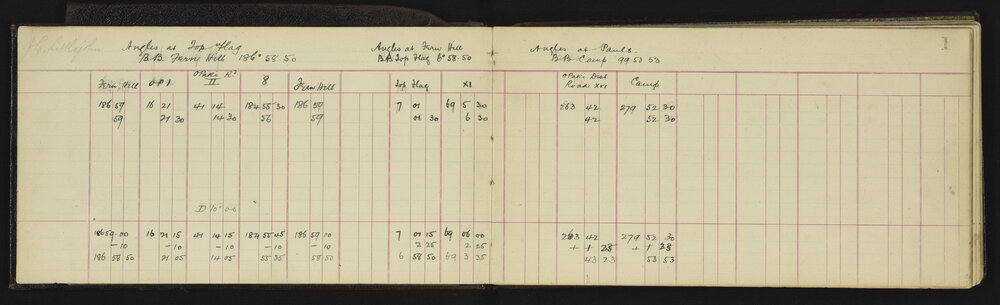 J G Littlejohn
Angles at Top Flag
B.B. Fern Hill 186° 58 50
Angles at Fern Hill
B.B Top Flag 6° 58 50
Angles at Pauls.
B.B. Camp 99 53 53
1
Fern Hill O P 1 OPaki Rd II 8 Fern Hill Top Flag XI OPaki Dist Roads XVI Camp
186 59 16 21 41 14 184 55 30 186 59 7 01 69 5 30 263 42 279 52 30
59 21 30 14 30 56 59 01 30 6 30 42 52 30
D 10" 00
186 59 00 16 21 15 41 14 15 184 55 45 186 59 00 7 01 15 69 06 00 263 42 279 52 30
- 10 - 10 - 10 - 10 - 10 2 25 2 25 + 1 23 + 1 23
186 58 50 21 05 14 05 55 35 58 50 6 58 50 69 3 35 43 23 53 53